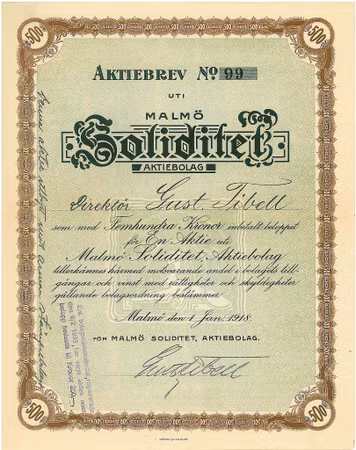 500
500
AKTIEBREV No 99
UTI
MALMÖ
Soliditet
AKTIEBOLAG
Direktör Gust. Tibell
som med Femhundra Kronor inbetalt beloppet
för En Aktie uti
Malmö Soliditet, Aktiebolag
tillerkännes härmed motsvarande andel i bolagets till-
gångar och vinst med rättigheter och skyldigheter
gällande bolagsordning bestämmer.
Malmö den 1 Jan. 1918.
FÖR MALMÖ SODILITET, AKTIEBOLAG.
Gust Tibell
500
500